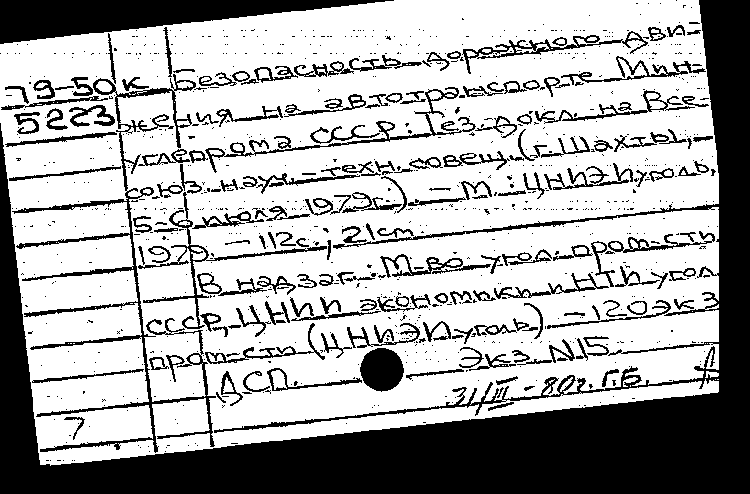 79-50к Безопасность дорожного дви-
5223 жения на автотранспорте Мин-
углепрома СССР: Тез. докл. на Все-
союз. науч.-техн. совещ. (г. Шахты,
5-6 июля 1979г.). - М.: ЦНИЭИуголь,
1979. - 112с.; 21cm.
В надзаг.: М-во угол. пром-сть
СССР, ЦНИИ экономики и НТИ угол
пром-сти (ЦНИЭИуголь) - 120экз
ДСП. Экз. N15.
31/III - 80г. Г.Б.
7